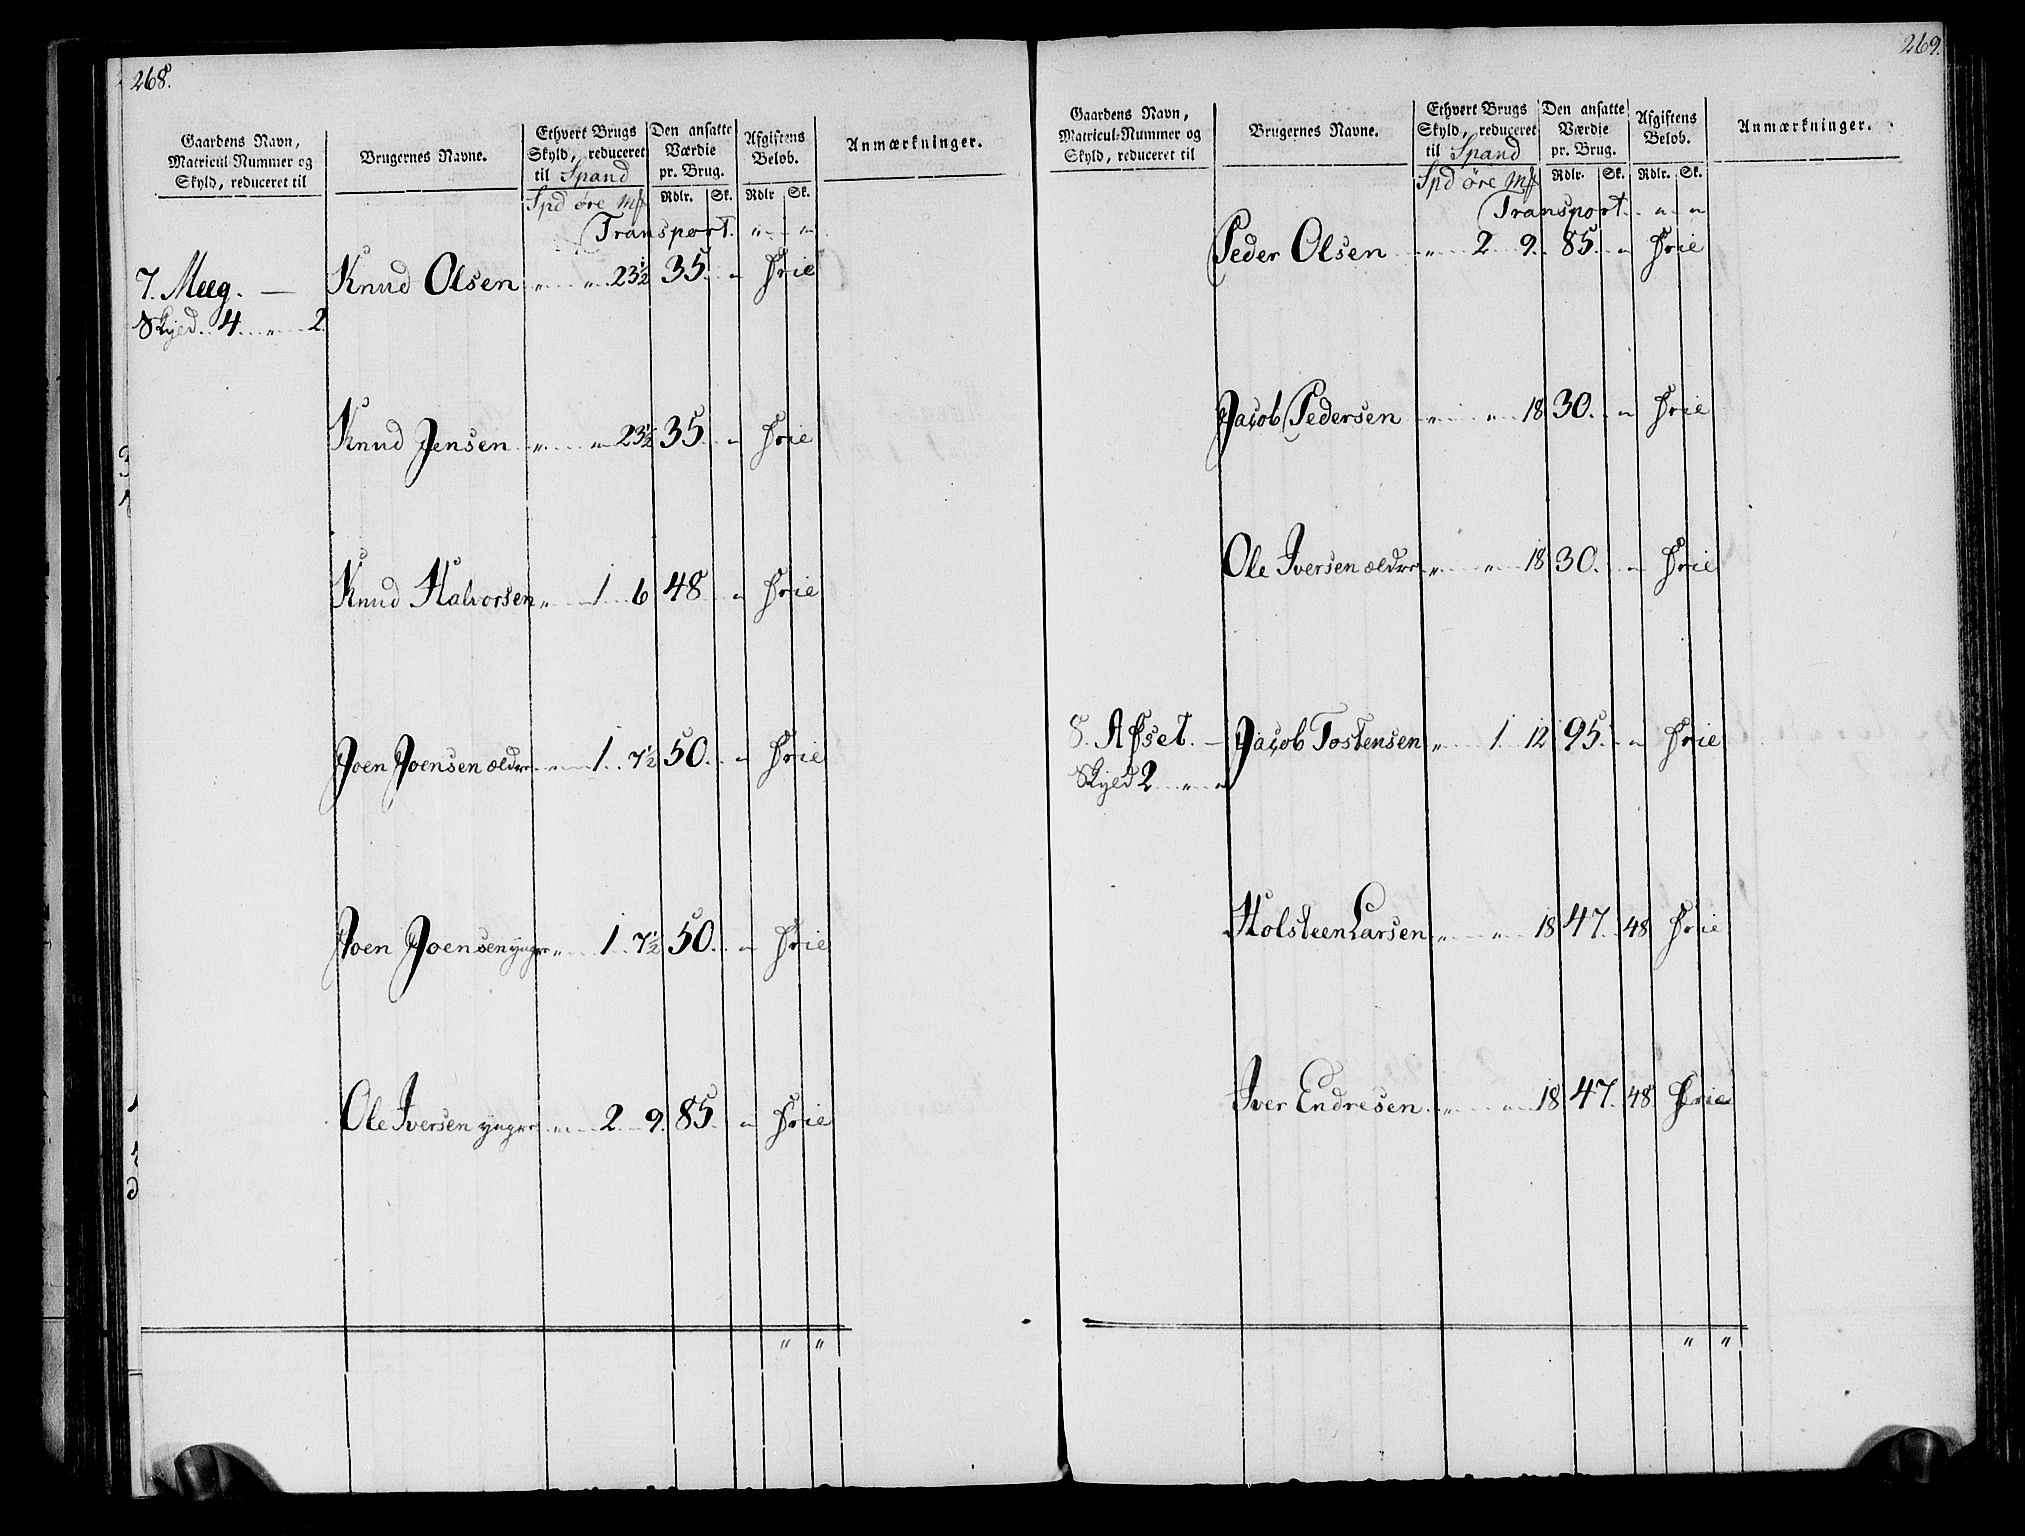 268.
Gaardens Navn, Matricul-Nummer og Skyld, reduceret til
Brugernes Navne.
Ethvert Brugs Skyld, reduceret til Spand
Den ansatte Værdie pr. Brug.
Afgiftens Belob.
Anmærkninger.
Spd øre Mk Rdlr. Sk. Rdlr Sk.
Transport. " "
7. Meeg. — Knud Olsen " " 23½ 35. " Frie
Skyld 4 " 2.
Knud Jensen " " 23½ 35. " Frie
Knud Halvorsen " 1 6 48 " Frie
Joen Joensen ældre " 1 7½ 50. " Frie
Joen Joensen yngre " 1 7½ 50. " Frie
Ole Iversen yngre " 2 9. 85. " Frie
" "
269.
Gaardens Navn, Matricul-Nummer og Skyld, reduceret til
Brugernes Navne.
Ethvert Brugs Skyld, reduceret til Spand
Den ansatte Værdie pr. Brug.
Afgiftens Belob.
Anmærkninger.
Spd øre Mk Rdlr. Sk. Rdlr. Sk.
Transport. " "
Peder Olsen " 2 9. 85. " Frie
Jacob Pedersen " " 18 30. " Frie
Ole Iversen ældre " " 18 30. " Frie
8. Afset. — Jacob Tostensen " 1 12 95. " Frie
Skyld 2 " "
Holsteen Larsen " " 18 47. 48 Frie
Iver Endresen " " 18 47. 48 Frie
" "